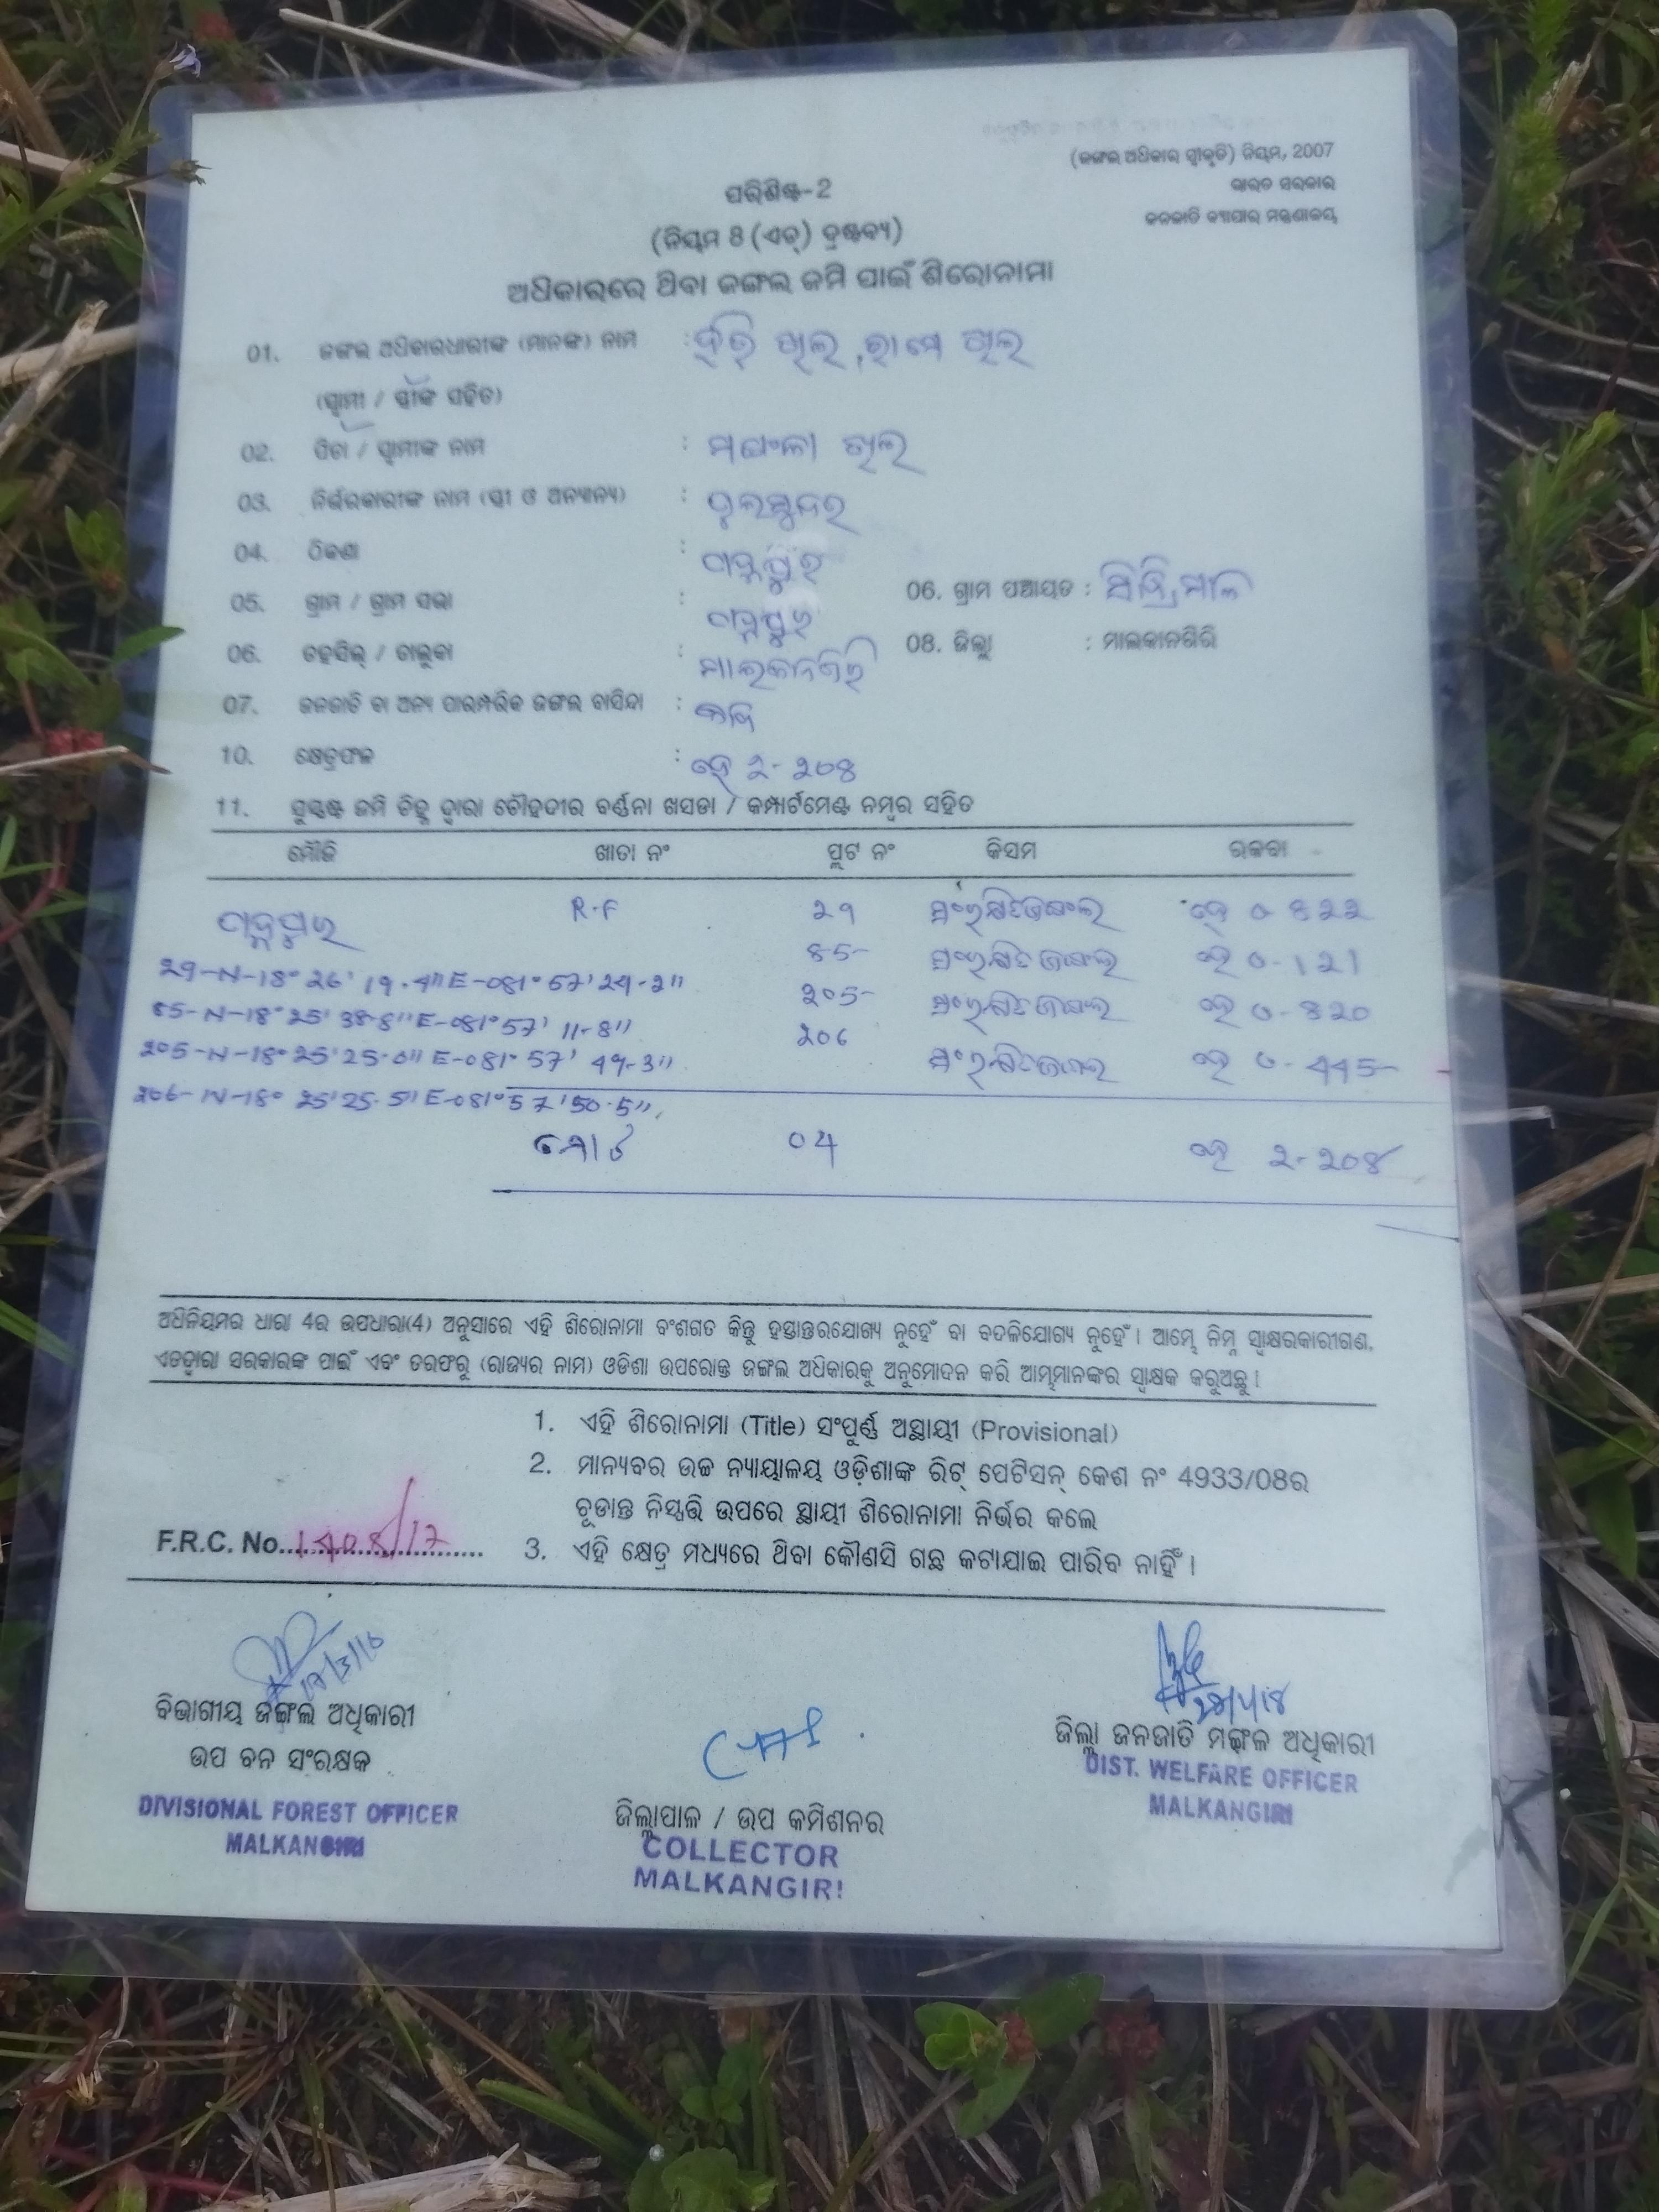 (ଜଙ୍ଗଲ ଅଧିକାର ସ୍ୱୀକୃତି) ନିୟମ, 2007
ଭାରତ ସରକାର
ଜନଜାତି ବ୍ୟାପାର ମନ୍ତ୍ରଣାଳୟ
ପରିଶିଷ୍ଟ-2
(ନିୟମ 8 (ଏଚ୍) ଦ୍ରଷ୍ଟବ୍ୟ)
ଅଧିକାରରେ ଥିବା ଜଙ୍ଗଲ ଜମି ପାଇଁ ଶିରୋନାମା
01. ଜଙ୍ଗଲ ଅଧିକାରଧାରୀଙ୍କ (ମାନଙ୍କ) ନାମ :
(ସ୍ୱାମୀ / ସ୍ତ୍ରୀଙ୍କ ସହିତ)
02. ପିତା / ସ୍ୱାମୀଙ୍କ ନାମ :
03. ନିର୍ଭରକାରୀଙ୍କ ନାମ (ସ୍ତ୍ରୀ ଓ ଅନ୍ୟାନ୍ୟ) :
04. ଠିକଣା :
05. ଗ୍ରାମ / ଗ୍ରାମ ସଭା : 06. ଗ୍ରାମ ପଞ୍ଚାୟତ :
06. ତହସିଲ୍ / ତାଲୁକା : ମାଲକାନଗିରି 08. ଜିଲ୍ଲା : ମାଲକାନଗିରି
07. ଜନଜାତି ବା ଅନ୍ୟ ପାରମ୍ପରିକ ଜଙ୍ଗଲ ବାସିନ୍ଦା :
10. କ୍ଷେତ୍ରଫଳ : ହେ 2-208
11. ସୁସ୍ପଷ୍ଟ ଜମି ଚିହ୍ନ ଦ୍ୱାରା ଚୌହଦୀର ବର୍ଣ୍ଣନା ଖସଡା / କମ୍ପାର୍ଟମେଣ୍ଟ ନମ୍ବର ସହିତ
ମୌଜି ଖାତା ନଂ ପ୍ଲଟ ନଂ କିସମ ରକବା
R-F 29 ସଂରକ୍ଷିତ ଜଙ୍ଗଲ ହେ 0-822
85 ସଂରକ୍ଷିତ ଜଙ୍ଗଲ ହେ 0-121
29-N-18° 26' 19.4" E-081° 57' 29-2"
205 ସଂରକ୍ଷିତ ଜଙ୍ଗଲ ହେ 0-820
85-N-18° 25' 38-8" E-081° 57' 11-8"
206 ସଂରକ୍ଷିତ ଜଙ୍ଗଲ ହେ 0-445
205-N-18° 25' 25-0" E-081° 57' 49-3"
206-N-18° 25' 25-5" E-081° 57' 50-5"
ମୋଟ 04 ହେ 2-208
ଅଧିନିୟମର ଧାରା 4ର ଉପଧାରା(4) ଅନୁସାରେ ଏହି ଶିରୋନାମା ବଂଶଗତ କିନ୍ତୁ ହସ୍ତାନ୍ତରଯୋଗ୍ୟ ନୁହେଁ ବା ବଦଳିଯୋଗ୍ୟ ନୁହେଁ । ଆମ୍ଭେ ନିମ୍ନ ସ୍ୱାକ୍ଷରକାରୀଗଣ,
ଏତଦ୍ୱାରା ସରକାରଙ୍କ ପାଇଁ ଏବଂ ତରଫରୁ (ରାଜ୍ୟର ନାମ) ଓଡିଶା ଉପରୋକ୍ତ ଜଙ୍ଗଲ ଅଧିକାରକୁ ଅନୁମୋଦନ କରି ଆମ୍ଭମାନଙ୍କର ସ୍ୱାକ୍ଷକ କରୁଅଛୁ ।
1. ଏହି ଶିରୋନାମା (Title) ସଂପୂର୍ଣ୍ଣ ଅସ୍ଥାୟୀ (Provisional)
2. ମାନ୍ୟବର ଉଚ୍ଚ ନ୍ୟାୟାଳୟ ଓଡ଼ିଶାଙ୍କ ରିଟ୍ ପେଟିସନ୍ କେଶ ନଂ 4933/08ର
ଚୂଡାନ୍ତ ନିସ୍ପତ୍ତି ଉପରେ ସ୍ଥାୟୀ ଶିରୋନାମା ନିର୍ଭର କଲେ
F.R.C. No. 3. ଏହି କ୍ଷେତ୍ର ମଧ୍ୟରେ ଥିବା କୌଣସି ଗଛ କଟାଯାଇ ପାରିବ ନାହିଁ ।
ବିଭାଗୀୟ ଜଙ୍ଗଲ ଅଧିକାରୀ
ଉପ ବନ ସଂରକ୍ଷକ
DIVISIONAL FOREST OFFICER
MALKANGIRI
ଜିଲ୍ଲାପାଳ / ଉପ କମିଶନର
COLLECTOR
MALKANGIRI
ଜିଲ୍ଲା ଜନଜାତି ମଙ୍ଗଳ ଅଧିକାରୀ
DIST. WELFARE OFFICER
MALKANGIRI